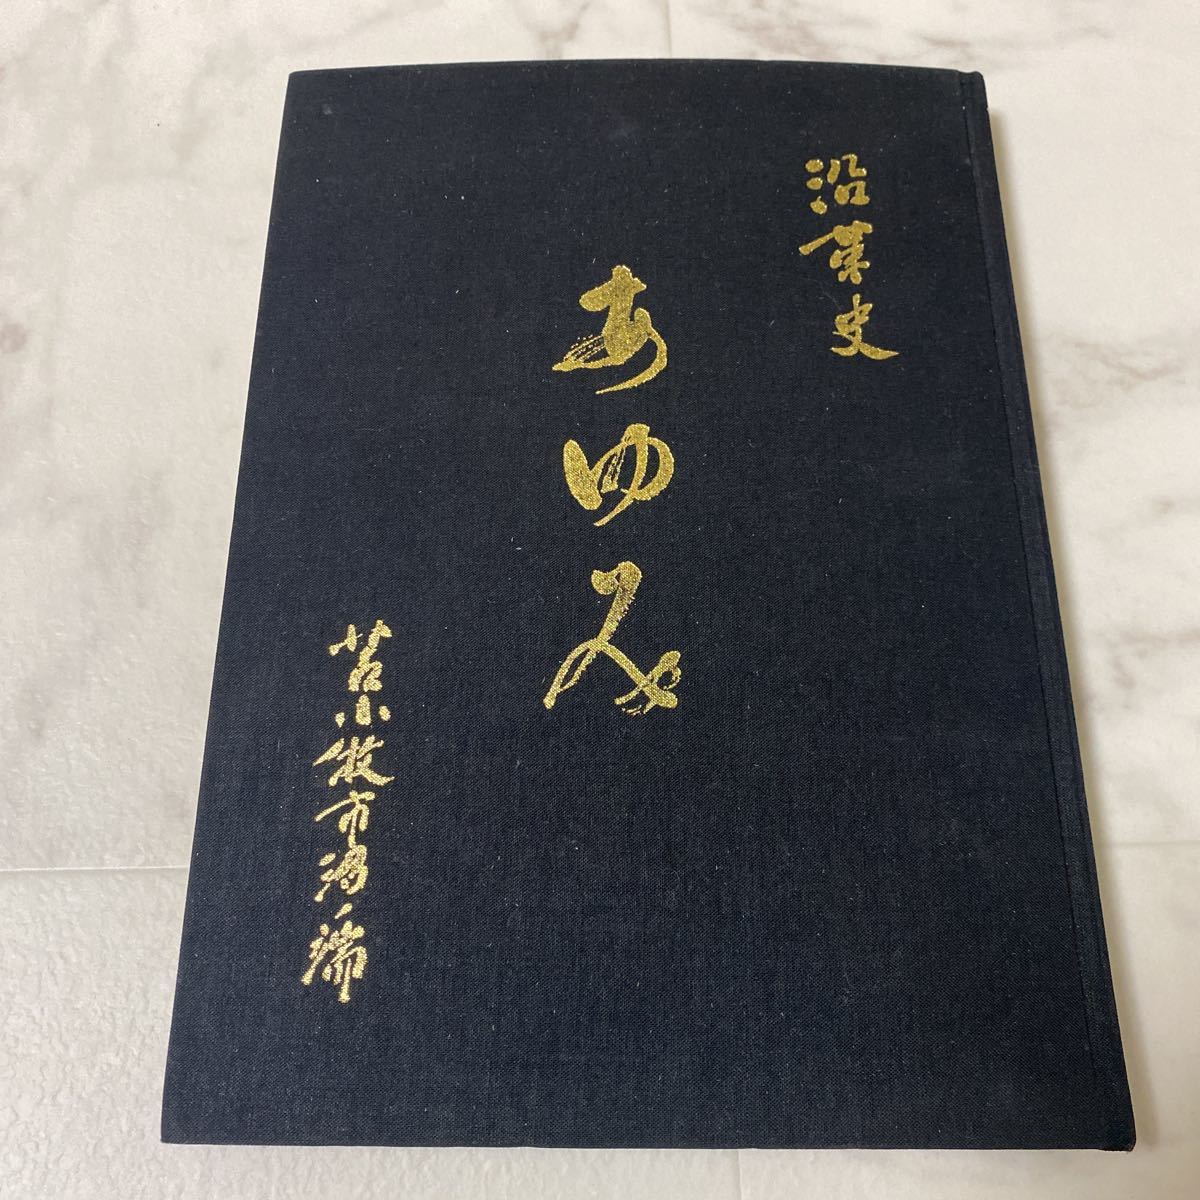 沿革史
あゆみ
苫小牧市沼ノ端